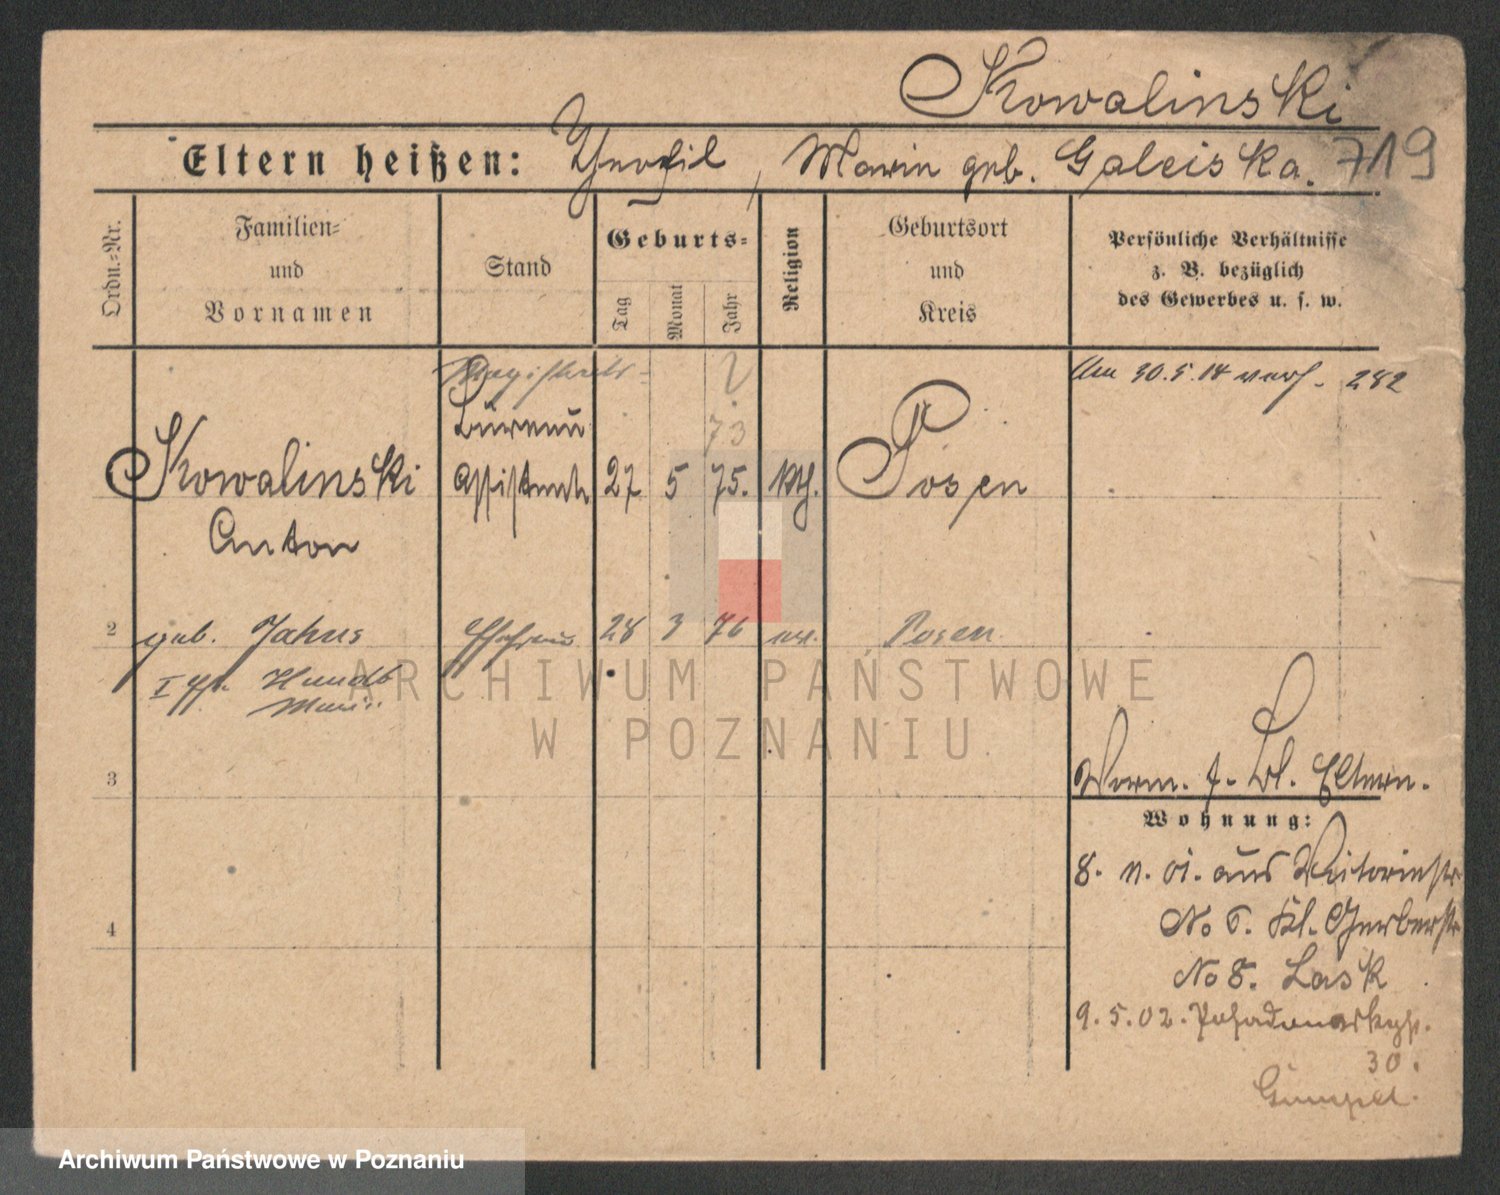 Kowalinski
Eltern heißen: Theofil, Marie geb. Galeiska. 719
Ordn.-Nr.
Familien-
und
Vornamen
Stand
Geburts-
Tag
Monat
Jahr
Religion
Geburtsort
und
Kreis
Persönliche Verhältnisse
z. B. bezüglich
des Gewerbes u. s. w.
Magistrats-
?
Am 30.5.14 282
Bureau
73
Kowalinski
Assistent 27 5 75. kth. Posen
Anton
2 geb. Jahns Ehefrau 28 3 76 ev. Posen
I
Marie
3
Eltern.
Wohnung:
8. 11. 01. aus
No 6. Kl. Gerberstr
No 8. Lask
4
9.5.02.
30.
ARCHIWUM PAŃSTWOWE
W POZNANIU
Archiwum Państwowe w Poznaniu